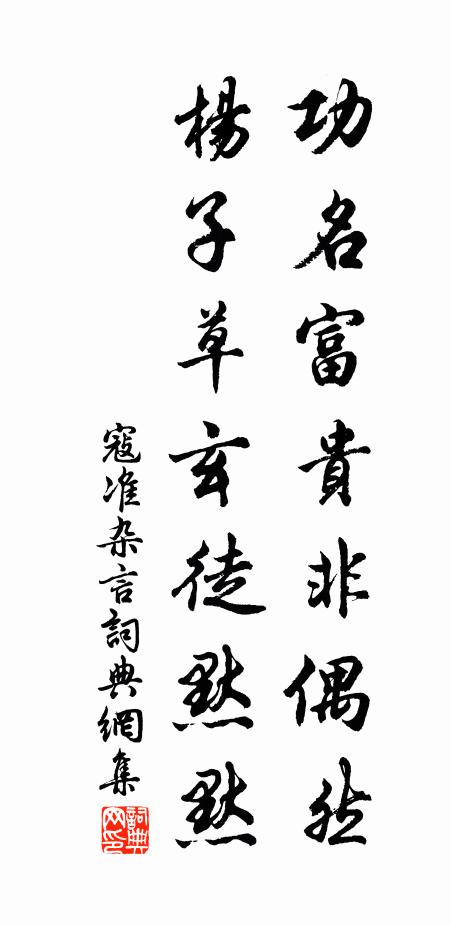 功名富貴非偶然
楊子草玄徒默默
寇准杂言詞典網集
詞典
网印